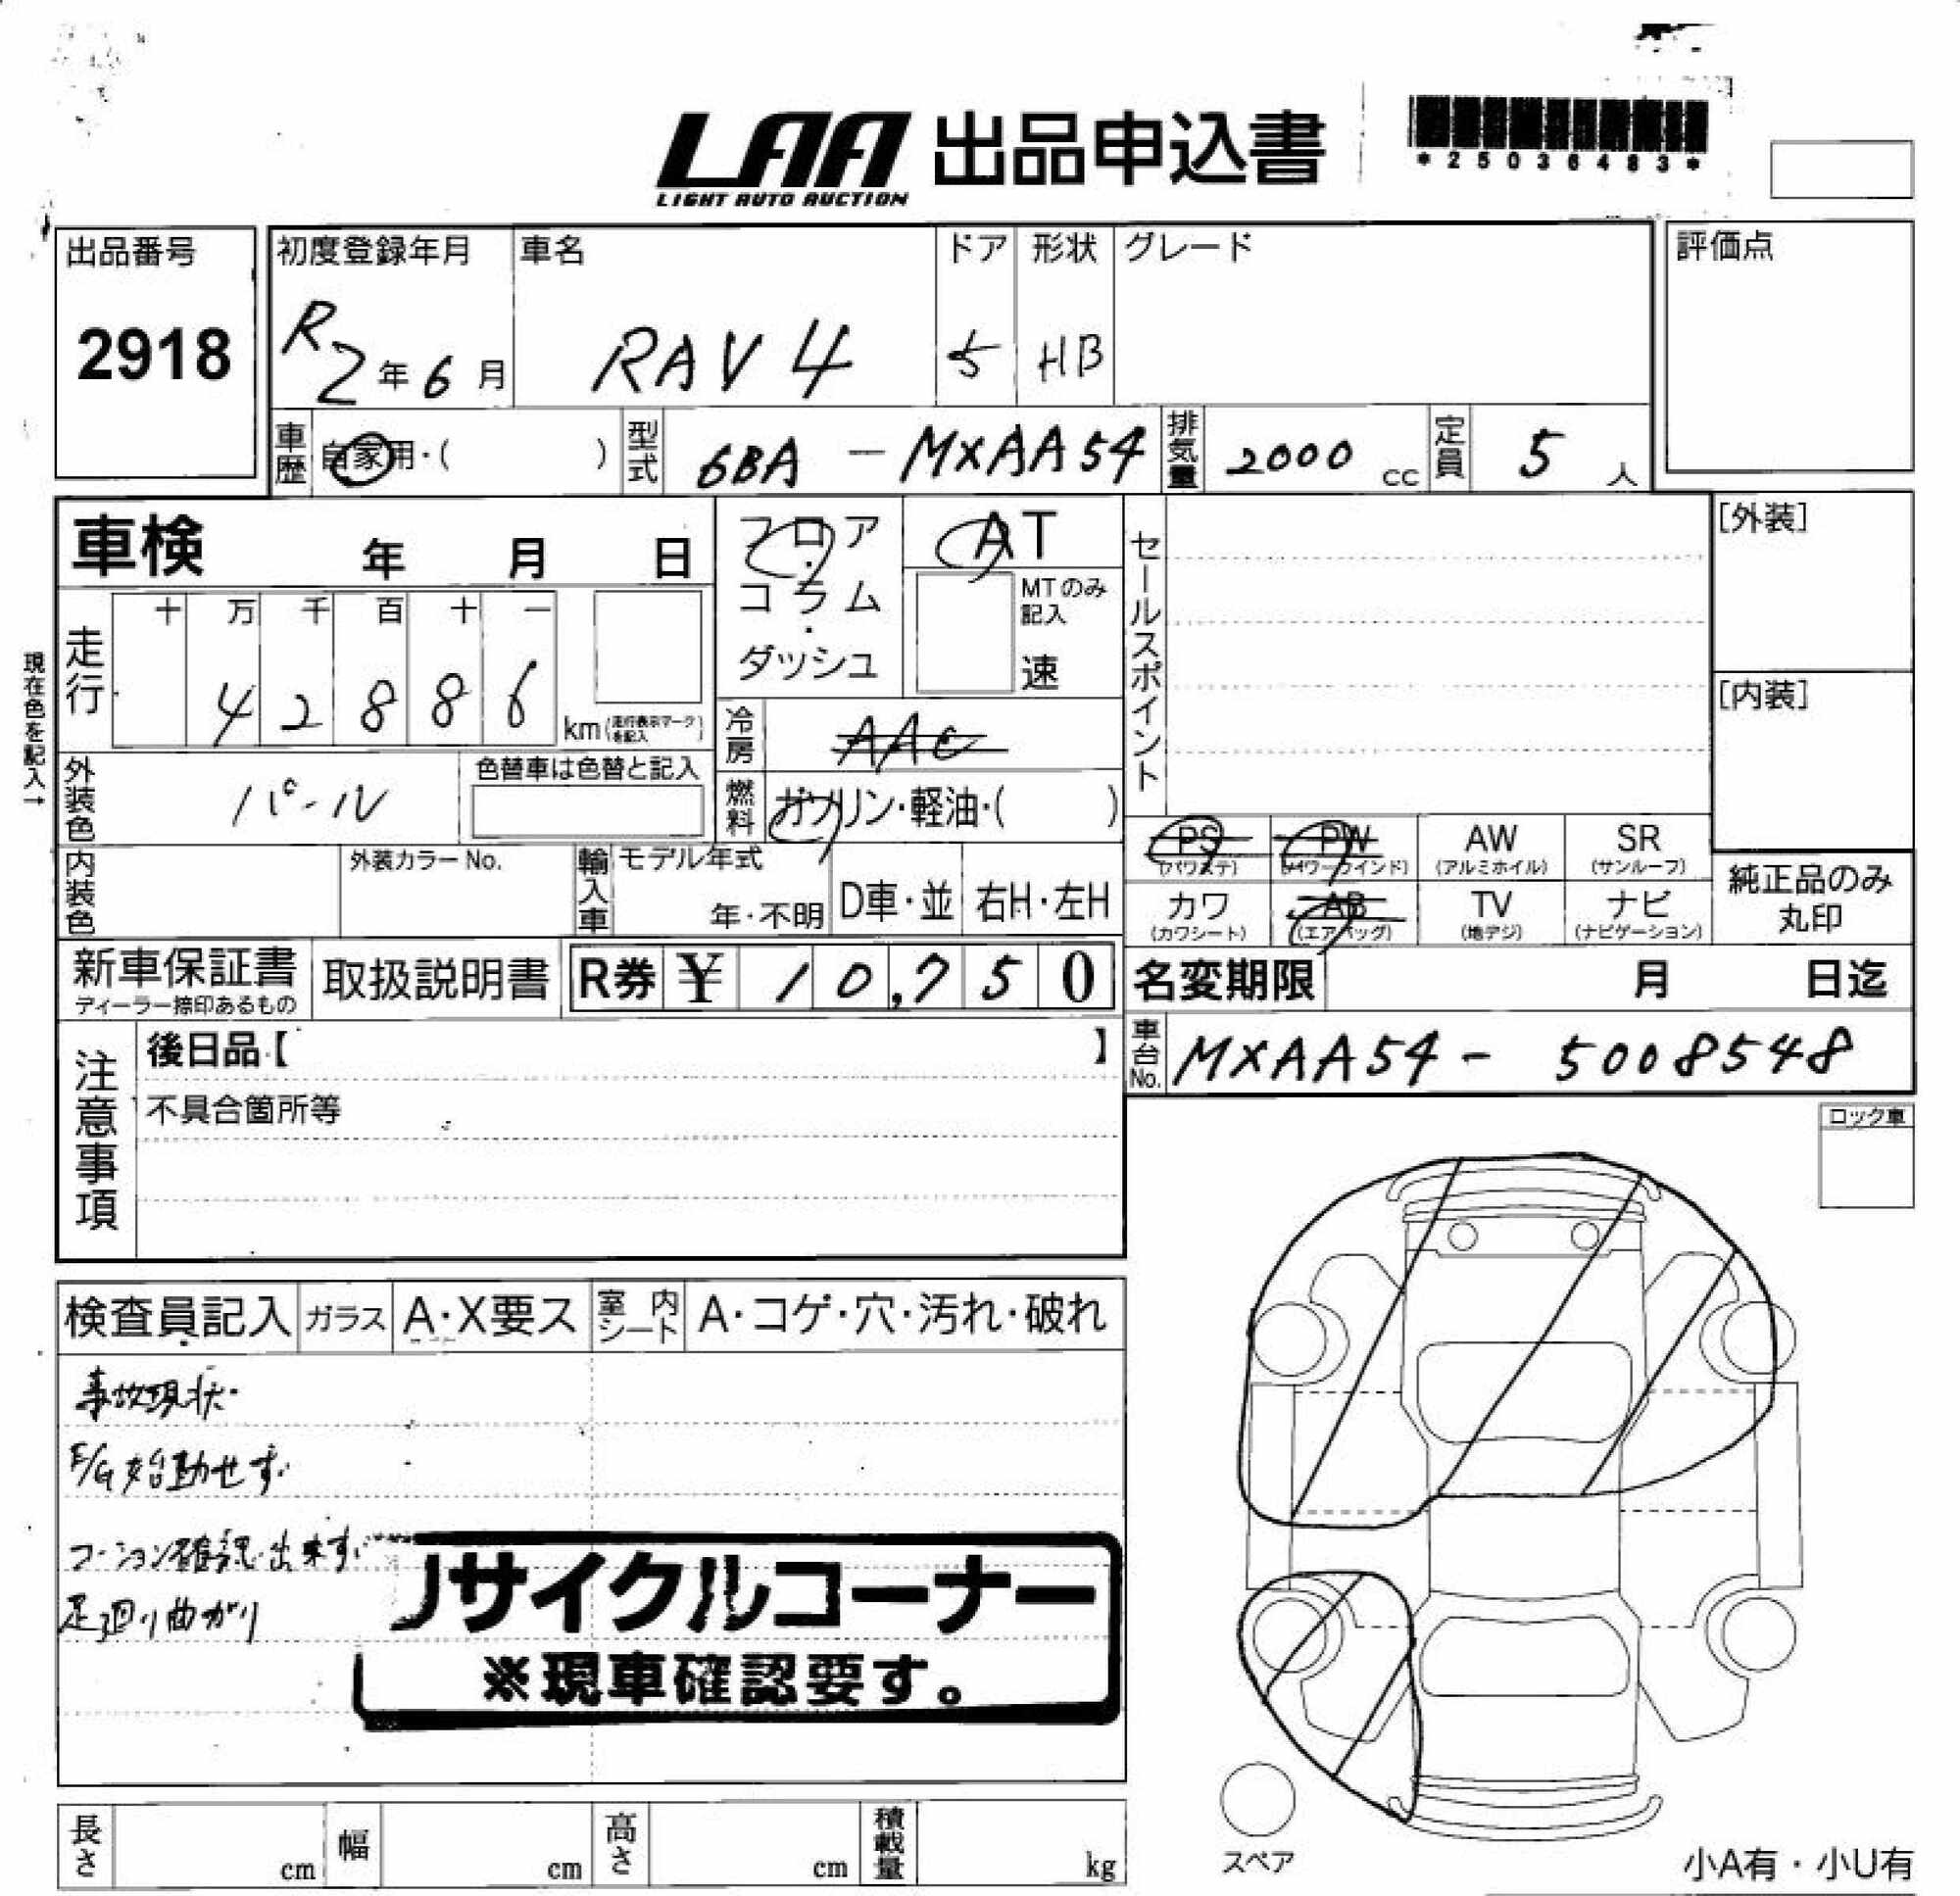 LAA 出品申込書
LIGHT AUTO AUCTION
*25036483*
出品番号
2918
初度登録年月
R2年6月
車名
RAV4
ドア
5
形状
HB
グレード
評価点
車歴
自家用・( )
型式
6BA-MXAA54
排気量
2000 cc
定員
5 人
車検 年 月 日
フロア
・
コラム
・
ダッシュ
AT
MTのみ
記入
速
セールスポイント
[外装]
[内装]
現在色を記入→
走行
十 万 千 百 十 一
4 2 8 8 6
km(走行表示マークを記入)
冷房
AAC
燃料
ガソリン・軽油・( )
外装色
パール
色替車は色替と記入
内装色
外装カラーNo.
輸入車
モデル年式
年・不明
D車・並
右H・左H
PS
(パワステ)
PW
(パワーウインド)
AW
(アルミホイル)
SR
(サンルーフ)
カワ
(カワシート)
AB
(エアバッグ)
TV
(地デジ)
ナビ
(ナビゲーション)
純正品のみ
丸印
新車保証書
ディーラー捺印あるもの
取扱説明書
R券 ¥ 10,750
名変期限 月 日迄
車台No.
MXAA54-5008548
注意事項
後日品【 】
不具合箇所等
ロック車
検査員記入
ガラス
A・X要ス
室内シート
A・コゲ・穴・汚れ・破れ
事故現状.
E/G始動せず.
コーション確認出来ず.
足廻り曲がり
リサイクルコーナー
※現車確認要す。
長さ cm
幅 cm
高さ cm
積載量 kg
スペア
小A有・小U有